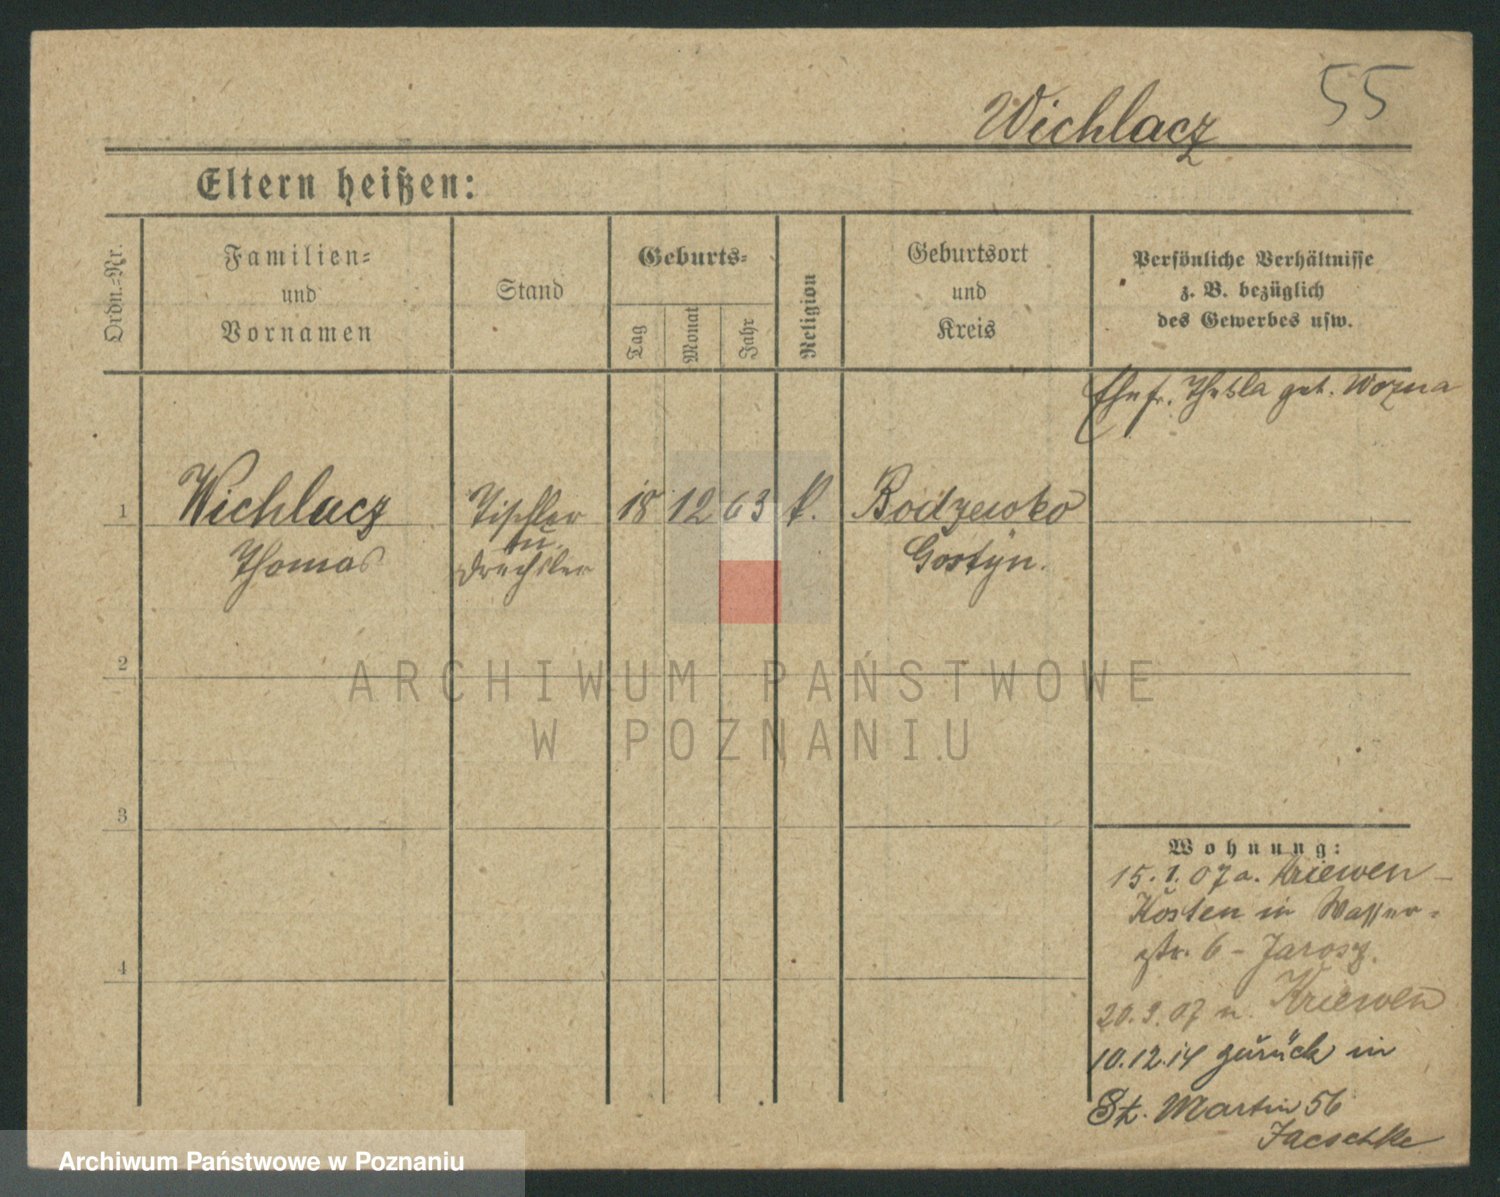 55
Wichlacz
Eltern heißen:
Ordn.-Nr.
Familien-
und
Vornamen
Stand
Geburts-
Tag
Monat
Jahr
Religion
Geburtsort
und
Kreis
Persönliche Verhältnisse
z. B. bezüglich
des Gewerbes usw.
Ehefr. Thekla geb. Wozna
1
Wichlacz
Thomas
Tischler
u.
Drechsler
18
12
63
k.
Bodzewko
Gostyn.
2
3
4
ARCHIWUM PAŃSTWOWE
W POZNANIU
Wohnung:
15.1.07 a. Kriewen -
Kosten in Wasser-
str. 6 - Jarosz.
20.9.07 n. Kriewen
10.12.14 zurück in
St. Martin 56
Jaeschke
Archiwum Państwowe w Poznaniu